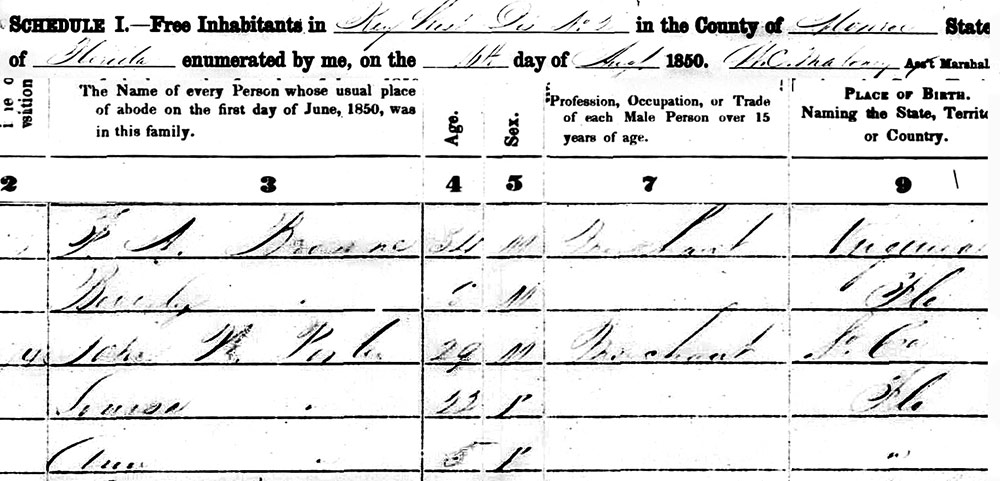 SCHEDULE I.—Free Inhabitants in Key West Dis No 2 in the County of Monroe State
of Florida enumerated by me, on the day of Augt 1850. W.C. Maloney Ass't Marshal
The Name of every Person whose usual place of abode on the first day of June, 1850, was in this family.
Age.
Sex.
Profession, Occupation, or Trade of each Male Person over 15 years of age.
PLACE OF BIRTH. Naming the State, Territo or Country.
2 3 4 5 7 9
F. A. Browne 34 M Merchant Virginia
M Flo
4 John P. 29 M Merchant
Louisa 22 F Flo
Ann 5 F "